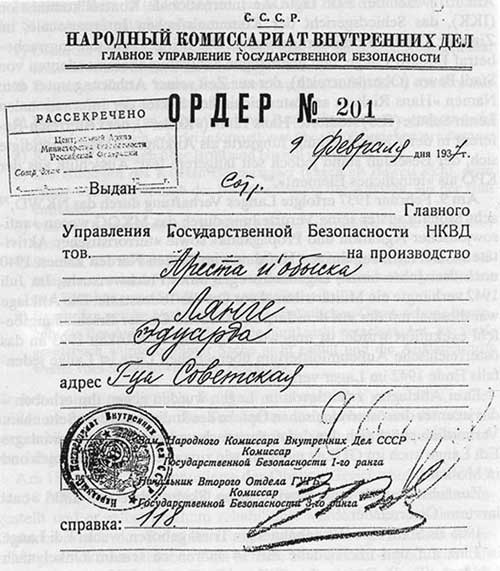 С. С. С. Р.
НАРОДНЫЙ КОМИССАРИАТ ВНУТРЕННИХ ДЕЛ
ГЛАВНОЕ УПРАВЛЕНИЕ ГОСУДАРСТВЕННОЙ БЕЗОПАСНОСТИ
РАССЕКРЕЧЕНО
Центральный Архив
Министерства Безопасности
Российской Федерации
ОРДЕР № 201
9 февраля дня 1937 г.
Выдан Сотр.
Главного
Управления Государственной Безопасности НКВД
тов. на производство
Ареста и обыска
Лянге
Эдуарда
адрес Г-ца Советская
Народный Комиссариат Внутренних Дел С.С.С.Р.
Зам. Народного Комиссара Внутренних Дел СССР
Комиссар
Государственной Безопасности 1-го ранга
Начальник Второго Отдела ГУГБ
Комиссар
Государственной Безопасности 3-го ранга
справка: